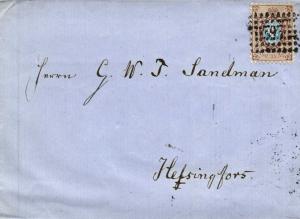 Herrn G. W. T. Sandman
Helsingfors.